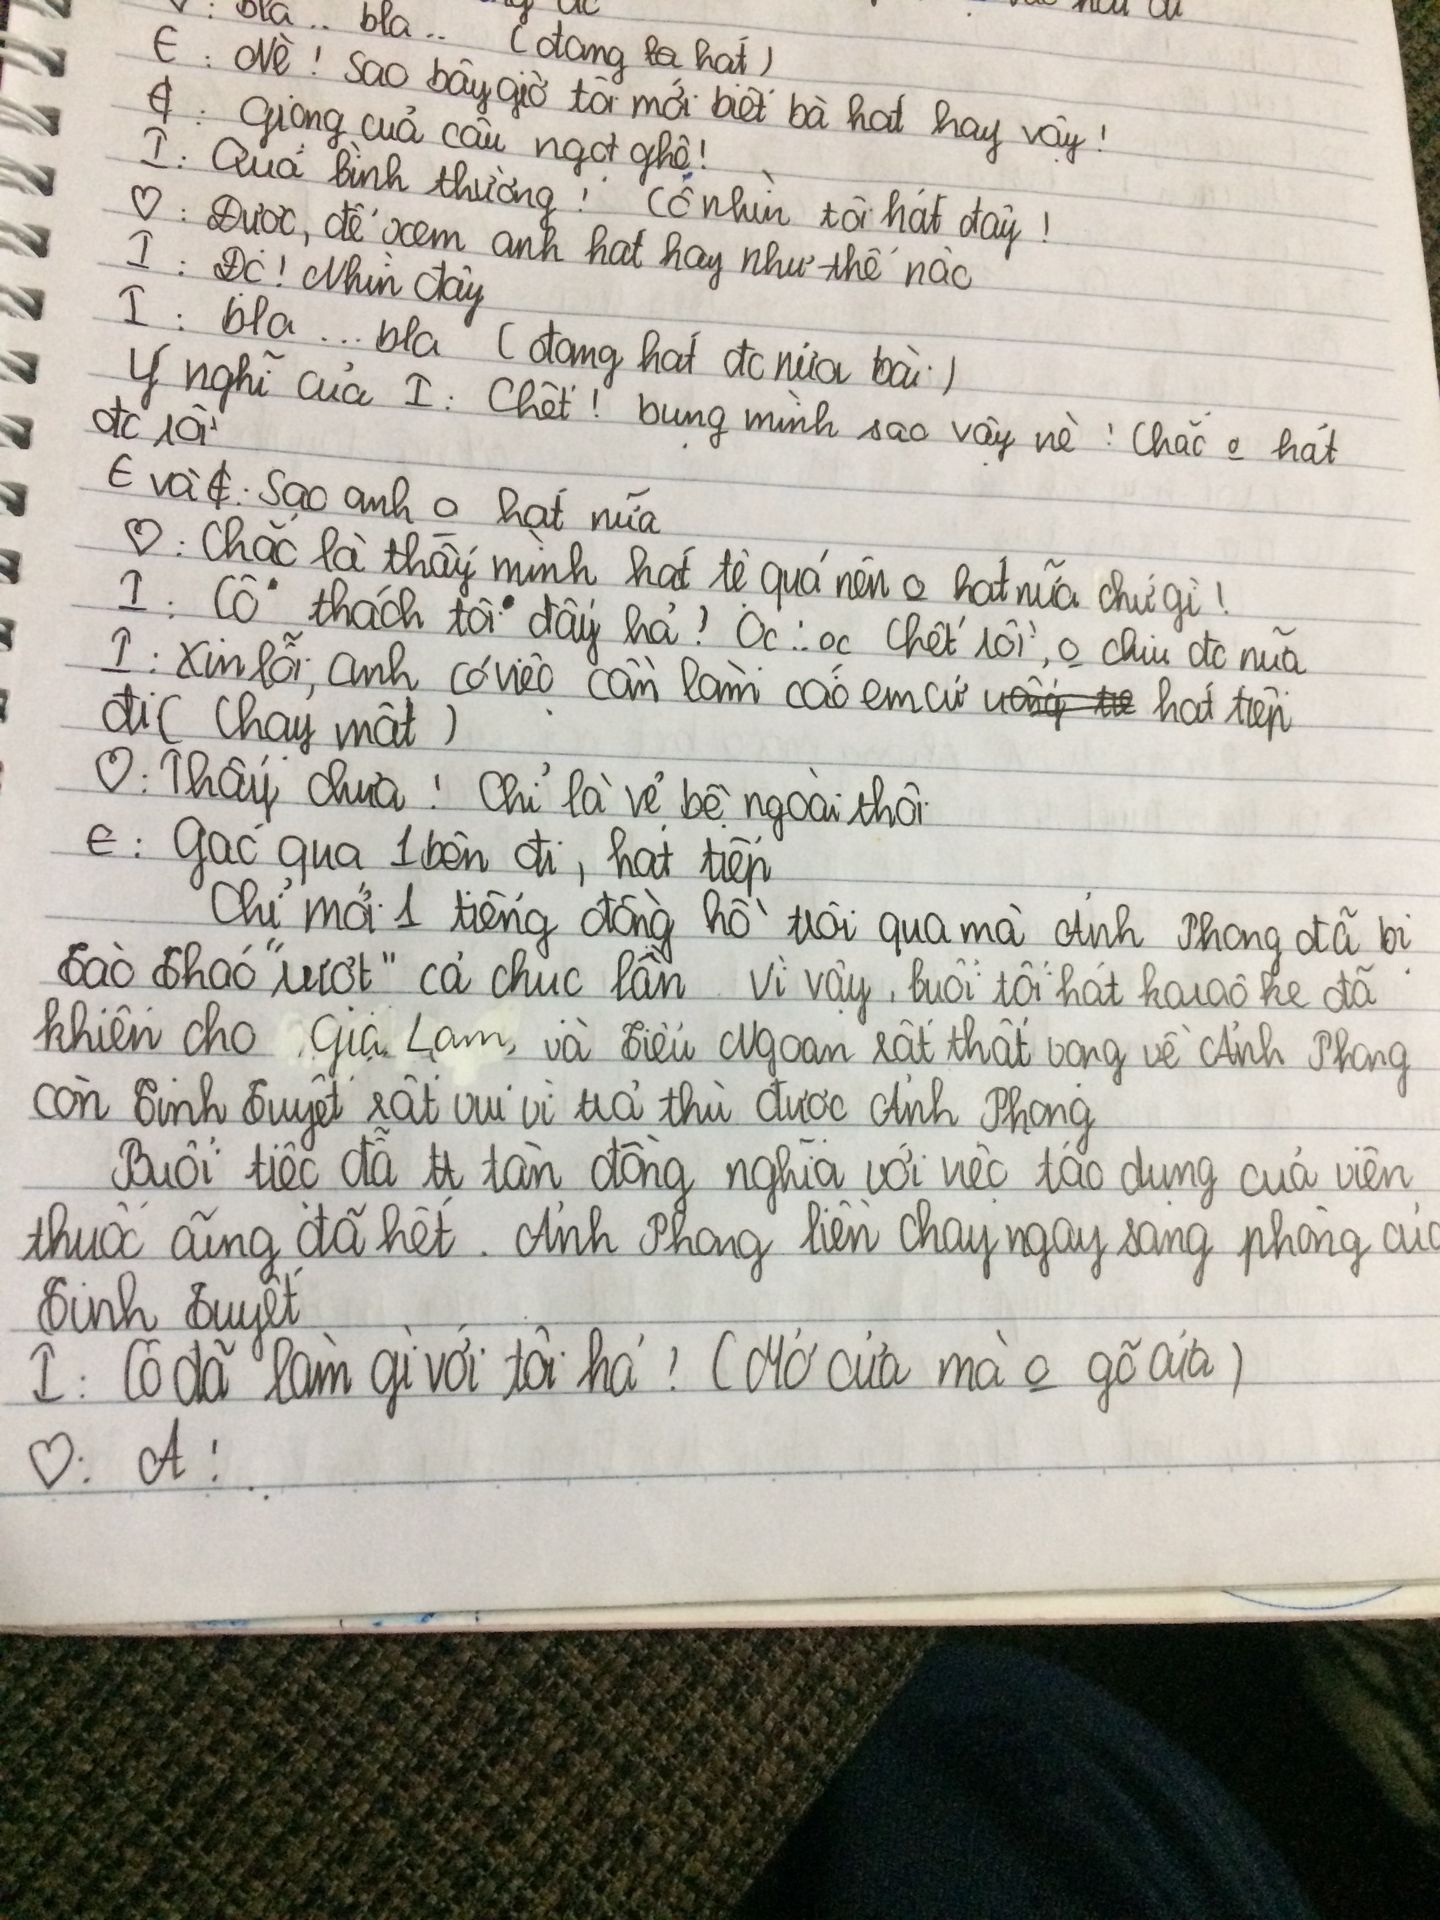 ♡: bla.. bla.. (đang hát)
E: Nè! Sao bây giờ tôi mới biết bà hát hay vậy!
₵: Giọng cuả cậu ngọt ghê!
I: Quá bình thường! Cô nhìn tôi hát đây!
♡: Được, để xem anh hát hay như thế nào
I: Đc! Nhìn đây
I: bla...bla (đang hát đc nửa bài)
Ý nghĩ của I: Chết! bụng mình sao vậy nè! Chắc o hát
đc rồi
E và ₵: Sao anh o hát nữa
♡: Chắc là thấy mình hát tệ quá nên o hát nữa chứ gì!
I: Cô thách tôi đấy hả! Ọc..ọc Chết rồi, o chịu đc nữa
I: Xin lỗi, anh có việc cần làm các em cứ hát tiếp
đi (chạy mất)
♡: Thấy chưa! Chỉ là vẻ bề ngoài thôi
E: Gác qua 1 bên đi, hát tiếp
Chỉ mới 1 tiếng đồng hồ trôi qua mà Ảnh Phong đã bị
Tào Tháo "rượt" cả chục lần. Vì vậy, buổi tối hát karaôke đã
khiến cho Gia Lam, và Tiểu Ngoan rất thất vọng về Ảnh Phong
còn Tinh Tuyết rất vui vì trả thù được Ảnh Phong
Buổi tiệc đã tàn đồng nghĩa với việc tác dụng cuả viên
thuốc cũng đã hết. Ảnh Phong liền chạy ngay sang phòng của
Tinh Tuyết
I: Cô đã làm gì với tôi hả! (Mở cửa mà o gõ cửa)
♡: A!